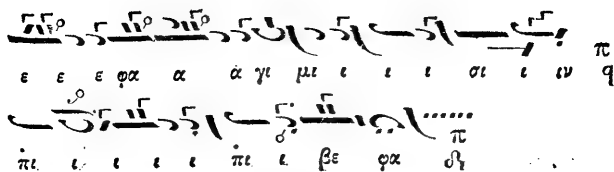 ε ε ε φα α ἀ γι μι ι ι ι σι ι ιν π q
πι ι ι ι ι πι ι βε φα π δι